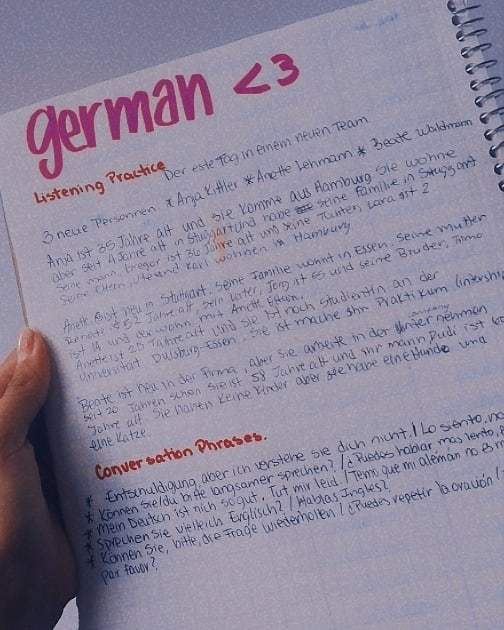 german <3
Listening Practice
Der este Tag in einem neuen Team
3 neue Personnen: * Anja Kittler * Anette Lehmann * Beate Waldmann
Anja ist 35 Jahre alt und sie komme aus Hamburg. Sie wohne
aber seit 4 Jahre alt in Stuggart und habe seine Familie in Stuggart
Seine mann, Gregor ist 36 Jahre alt und seine Tochter, Lara ist 2
Seine Eltern, und Karl wohnen in Hamburg
Anette ist neu in Stuttgart, seine Familie wohnt in Essen. Seine mutter
Renate ist 62 Jahre alt, sein Vater, Jorg ist 65 und seine Bruder, Timo
ist 19 und er wohn mit Anett Eltern.
Anette ist 25 Jahre alt und sie ist noch studentin an der
Universität Duisburg-Essen. Sie ist mache ihr Praktikum
company
Beate ist neu in der Firma, aber sie arbeite in der Unternehmen
seit 20 Jahren schon sie ist 58 Jahre alt und ihr mann, Rudi ist
Jahre alt. Sie haben keine Kinder aber sie habe eine Hunde und
eine Katze.
Conversation Phrases.
* Entschuldigung, aber ich verstehe Sie dich nicht. / Lo siento, no
* Können Sie/du bitte langsamer sprechen? / ¿Puedes hablar mas lento,
* Mein Deutsch ist nich so gut. Tut mir leid. / Temo que mi alemán no es
* Sprechen Sie vielleich Englisch? / Hablas Ingles?
* Können Sie, bitte, die Frage wiederholen? / ¿Puedes repetir la oración /
Por favor?